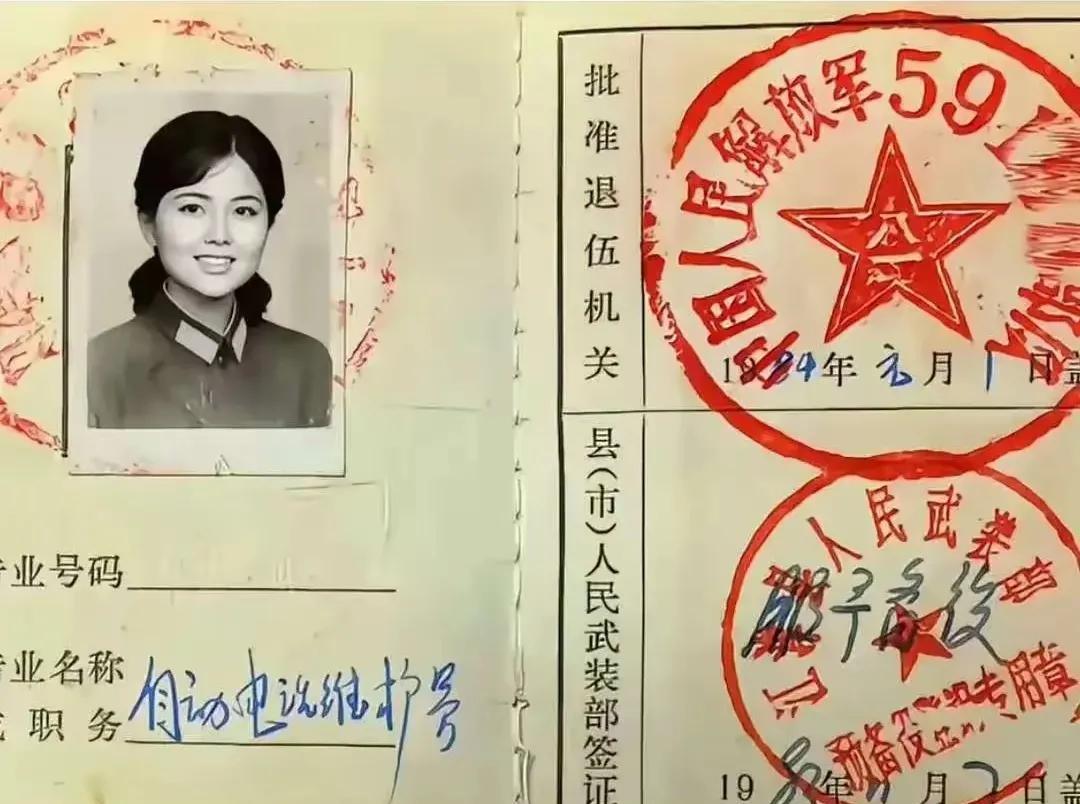 专业号码
专业名称
或职务 自动电话维护员
批准退伍机关
中国人民解放军59
1984年元月1日盖
县(市)人民武装部签证
人民武装部
服预备役
预备役登记专用章
19 年 月 日盖